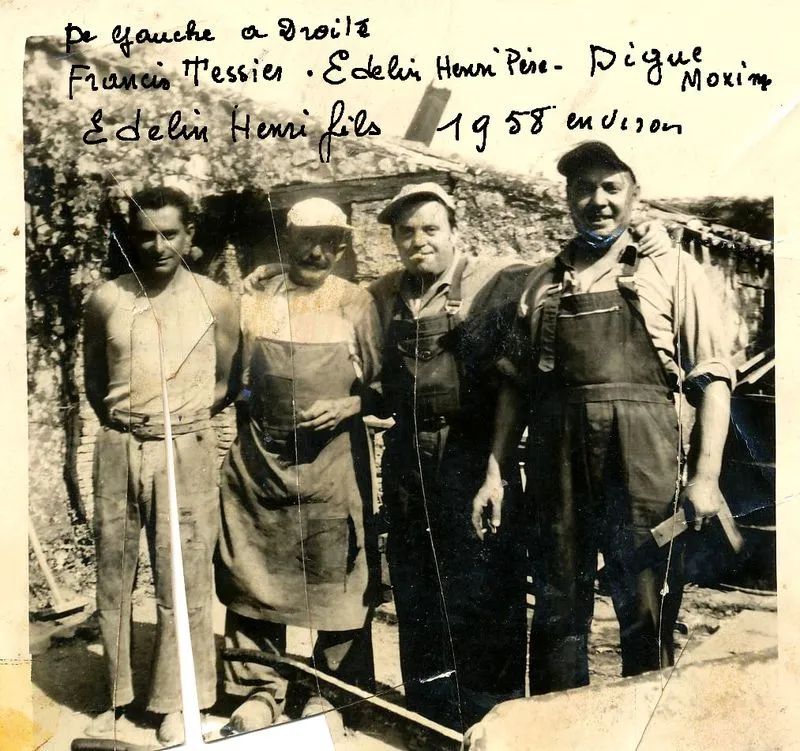 De Gauche a Droite
Francis Tessier . Edelin Henri Père - Digue Moxim
Edelin Henri fils 1958 environ